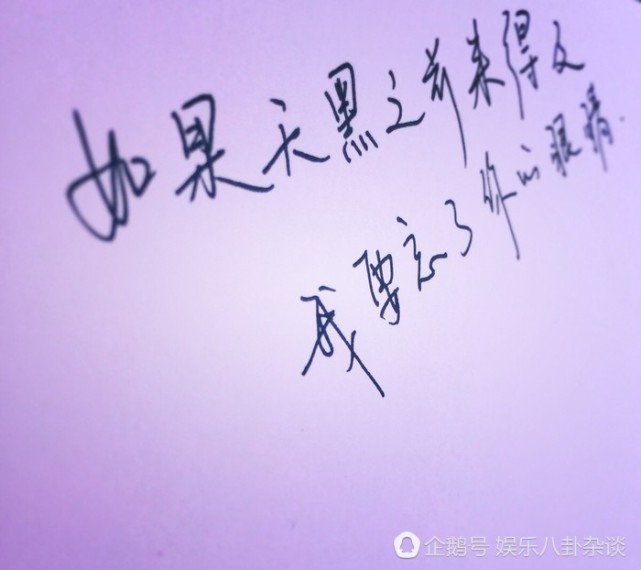 如果天黑之前来得及
我要忘了你的眼睛.
企鹅号 娱乐八卦杂谈